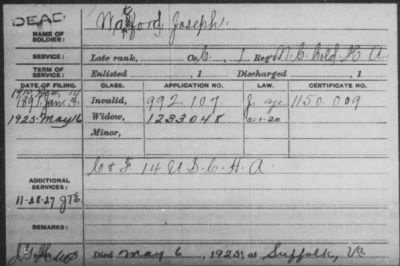 DEAD
NAME OF SOLDIER: Wafford, Joseph.
SERVICE: Late rank, Co. C, 1 Reg't N.C. Cold H A.
TERM OF SERVICE: Enlisted , 1 Discharged , 1
DATE OF FILING. CLASS. APPLICATION NO. LAW. CERTIFICATE NO.
1891 Jan. 3. Invalid, 992.107 1150.009
1925-May 16 Widow, 1233048 5-1-20
Minor,
ADDITIONAL SERVICES: C & F 14 U.S.C.H.A.
11-28-27
REMARKS:
Died May 6, 1925, at Suffolk, Va